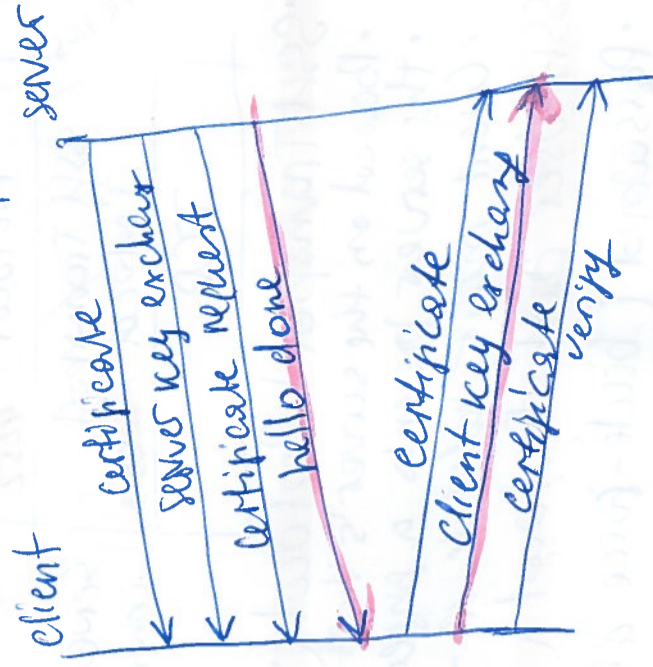 client
server
certificate
server key exchang
certificate request
hello done
certificate
client key exchang
certificate
verify